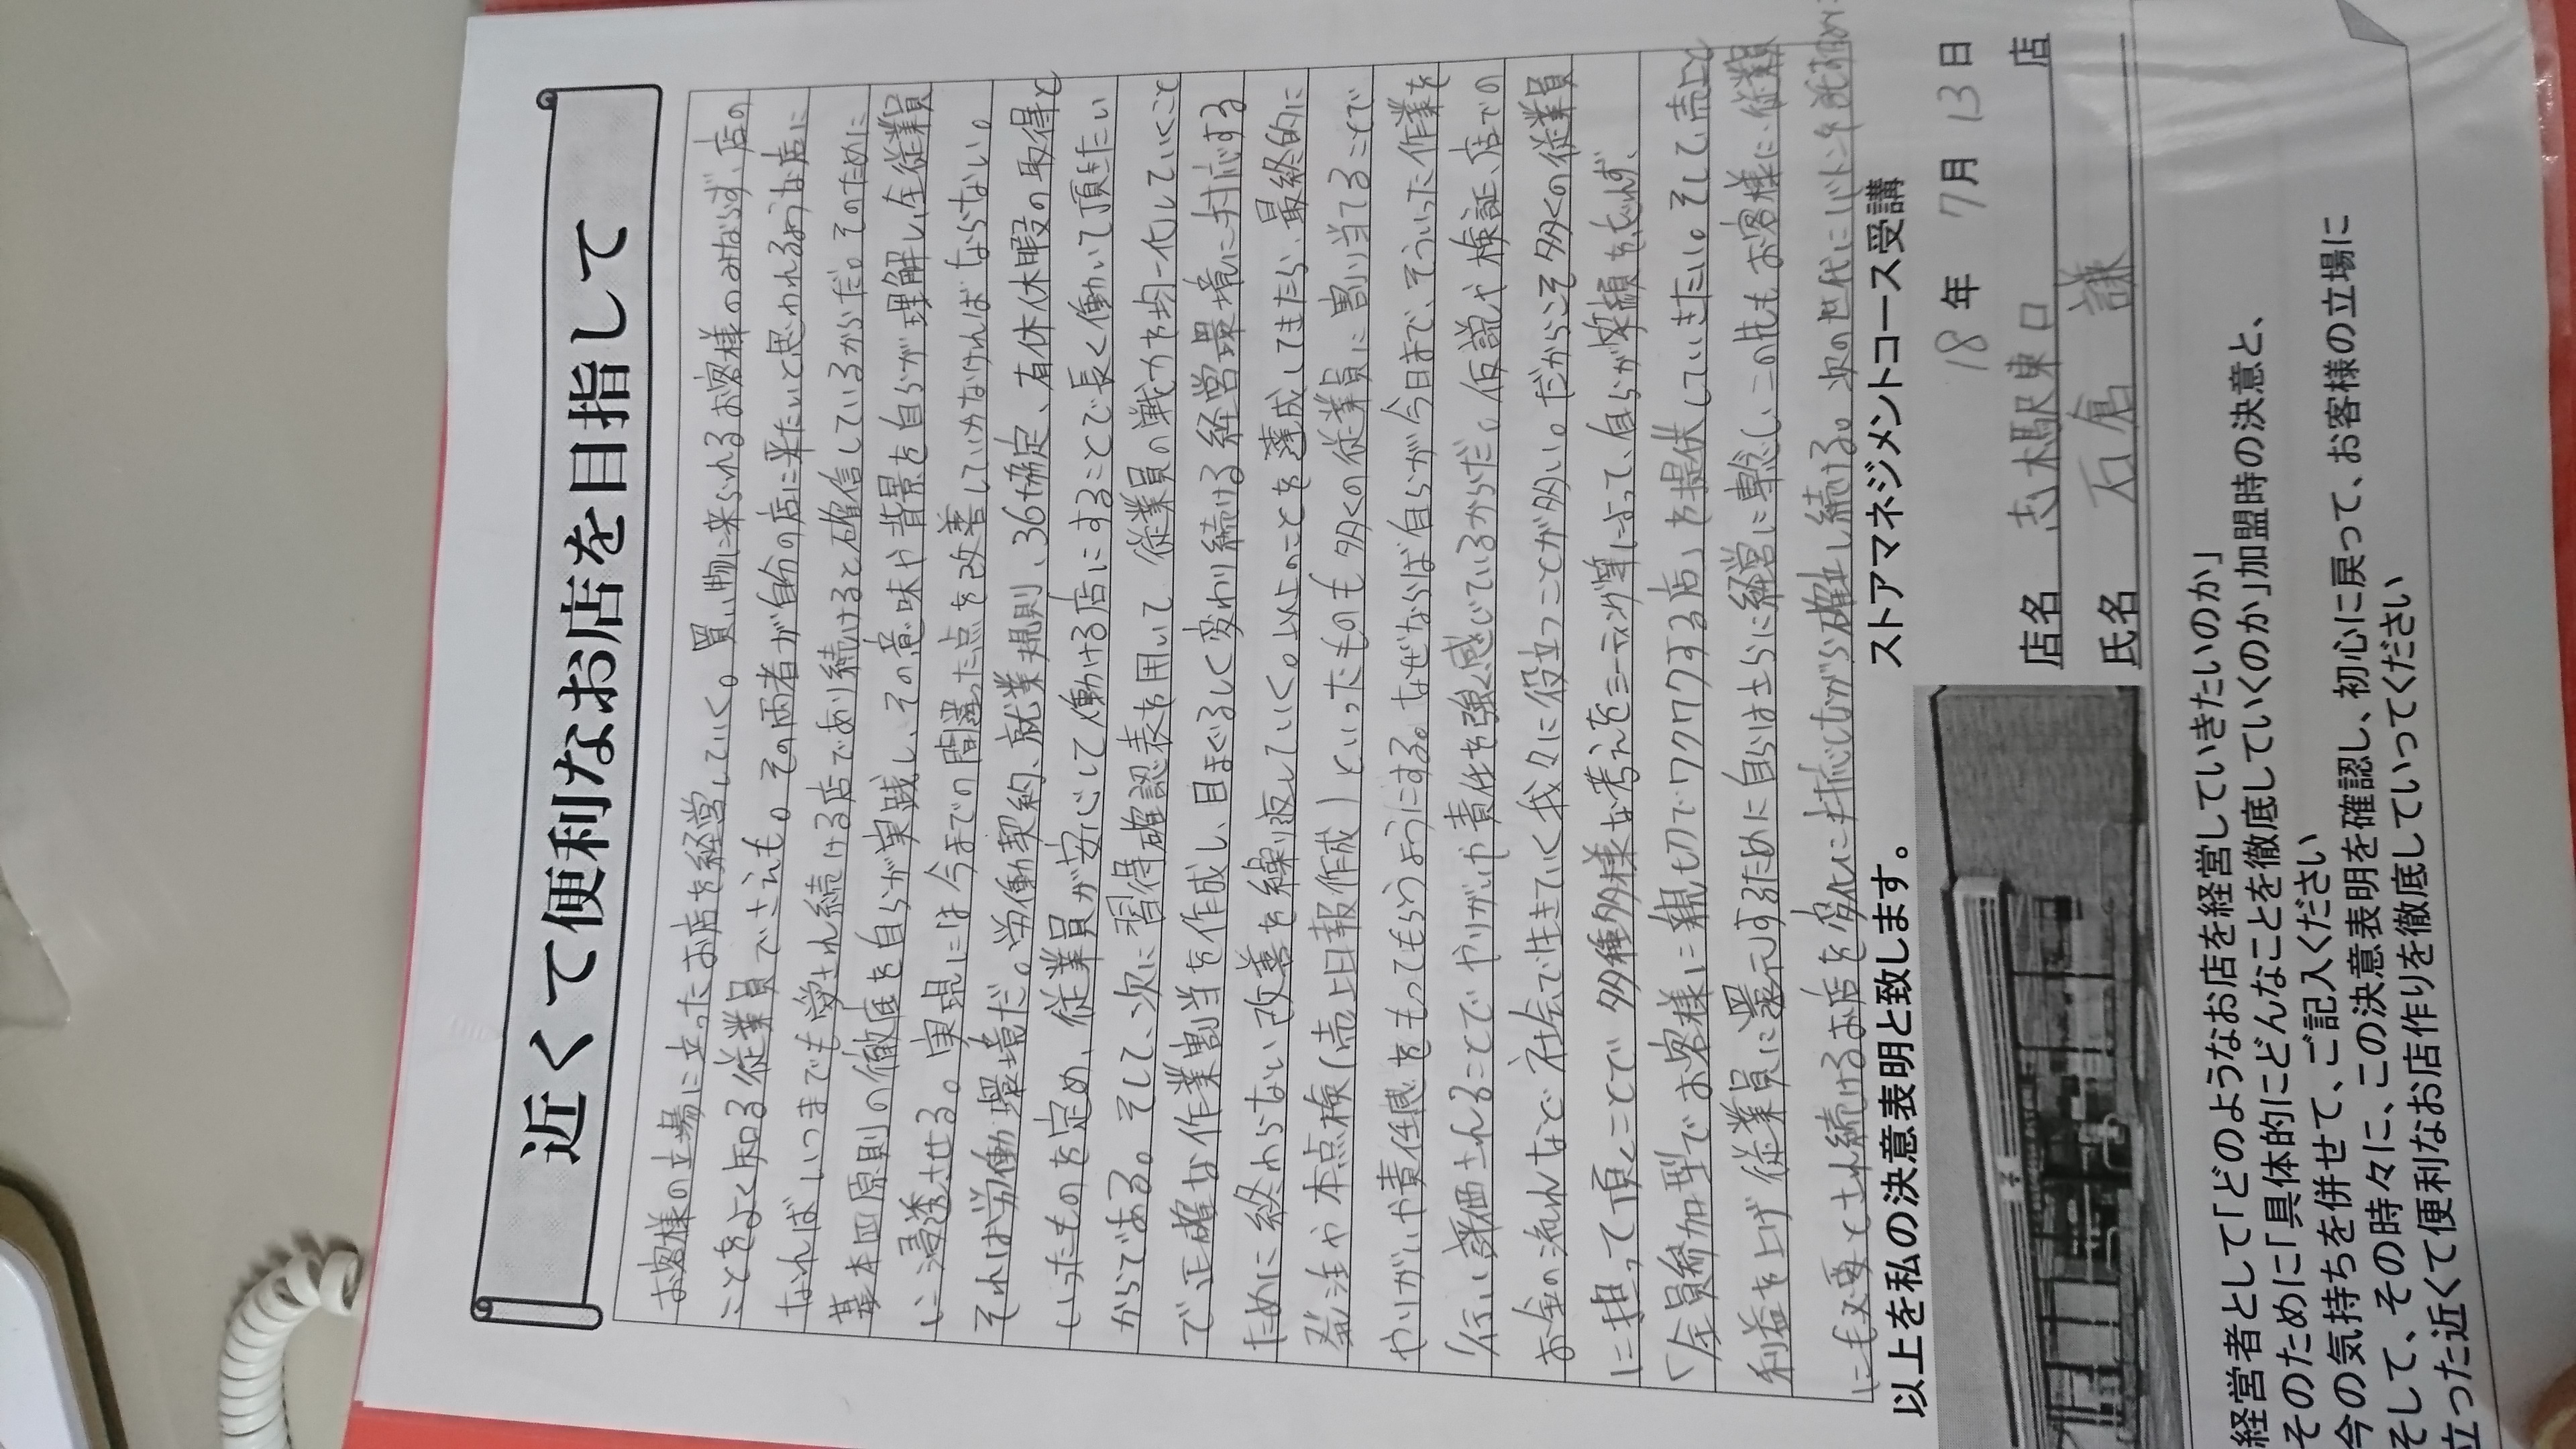 近くて便利なお店を目指して
お客様の立場に立ったお店を経営していく。買い物に来られるお客様のみならず、店の
ことをよく知る従業員でさえも。その両者が自分の店に来たいと思われるような店に
なればいつまでも愛され続ける店であり続けると確信しているからだ。そのために
基本四原則の徹底を自らが実践し、その意味や背景を自らが理解し、全従業員
に浸透させる。実現には今までの間違った点を改善していかなければならない。
それは労働環境だ。労働契約、就業規則、36協定、有休休暇の取得と
いったものを定め、従業員が安心して働ける店にすることで長く働いて頂きたい
からである。そして、次に習得確認表を用いて従業員の戦力を均一化していくこと
で正確な作業割当を作成し、目まぐるしく変わり続ける経営環境に対応する
ために終わらない改善を繰り返していく。以上のことを達成してきたら、最終的に
発注や本点検(売上日報作成)といったものも多くの従業員に割り当てることで
やりがいや責任感をもってもらうようにする。なぜならば自らが今日まで、そういった作業を
行い評価されることでやりがいや責任を強く感じているからだ。仮説や検証、店での
お金の流れなど社会で生きていく我々に役立つことが多い。だからこそ多くの従業員
に担って頂くことで多種多様な考えをミーティング等によって、自らが笑顔を忘れず、
「全員参加型でお客様に親切でワクワクする店」を提供していきたい。そして、売上と
利益を上げ従業員に還元するために自らはさらに経営に専念し、この先もお客様に、従業員
にも必要とされ続けるお店を変化に対応しながら確立し続ける。次の世代にバトンを託すため
以上を私の決意表明と致します。
ストアマネジメントコース受講
18年 7月13日
店名 志木駅東口 店
氏名 石倉 謙
経営者として「どのようなお店を経営していきたいのか」
そのために「具体的にどんなことを徹底していくのか」加盟時の決意と、
今の気持ちを併せて、ご記入ください
そして、その時々に、この決意表明を確認し、初心に戻って、お客様の立場に
立った近くて便利なお店作りを徹底していってください